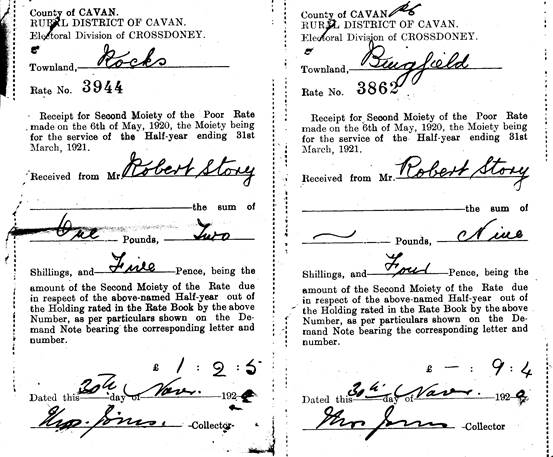 County of CAVAN.
RURAL DISTRICT OF CAVAN.
Electoral Division of CROSSDONEY.
Townland, Rocks
Rate No. 3944
Receipt for Second Moiety of the Poor Rate
made on the 6th of May, 1920, the Moiety being
for the service of the Half-year ending 31st
March, 1921.
Received from Mr. Robert Story
the sum of
One Pounds, Two
Shillings, and Five Pence, being the
amount of the Second Moiety of the Rate due
in respect of the above-named Half-year out of
the Holding rated in the Rate Book by the above
Number, as per particulars shown on the De-
mand Note bearing the corresponding letter and
number.
£ 1 : 2 : 5
Dated this 30th day of Novr. 192
Thos. Jones. -Collector
County of CAVAN
RURAL DISTRICT OF CAVAN.
Electoral Division of CROSSDONEY.
Townland, Bingfield
Rate No. 3862
Receipt for Second Moiety of the Poor Rate
made on the 6th of May, 1920, the Moiety being
for the service of the Half-year ending 31st
March, 1921.
Received from Mr. Robert Story
the sum of
— Pounds, Nine
Shillings, and Four Pence, being the
amount of the Second Moiety of the Rate due
in respect of the above-named Half-year out of
the Holding rated in the Rate Book by the above
Number, as per particulars shown on the De-
mand Note bearing the corresponding letter and
number.
£ — : 9 : 4
Dated this 30th day of Novr. 192
Thos Jones -Collector